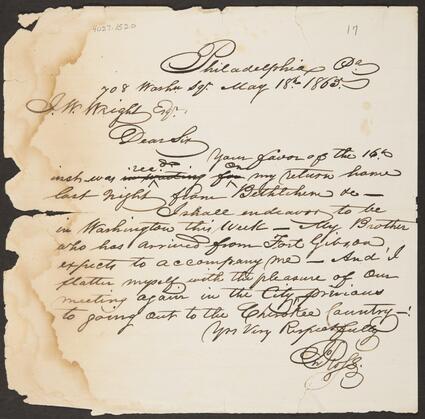 4027.1520
17
Philadelphia Pa
708 Washn Sqr. May 18th 1865.
J. W. Wright Esqr.
Dear Sir
Your favor of the 16th
inst. was recd on my return home
last night from Bethlehem &c —
I shall endeavor to be
in Washington this week — My Brother
who has arrived from Fort Gibson,
expects to accompany me — And I
flatter myself with the pleasure of our
meeting again in the City, previous
to going out to the Cherokee Country —
Yrs Very Respectfully
Jno Ross